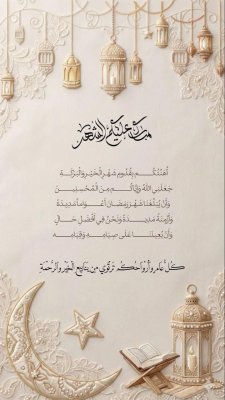 مبارك عليكم الشهر
أهنئكم بقدوم شهر الخير والبركة
جعلني الله وإياكم من المحسنين
وأن يبلغنا شهر رمضان أعواماً مديدة
وأزمنة مديدة ونحن في أفضل حال
وأن يعيننا على صيامه وقيامه
كل عام وأرواحكم ترتوي من ينابيع الخير والرحمة